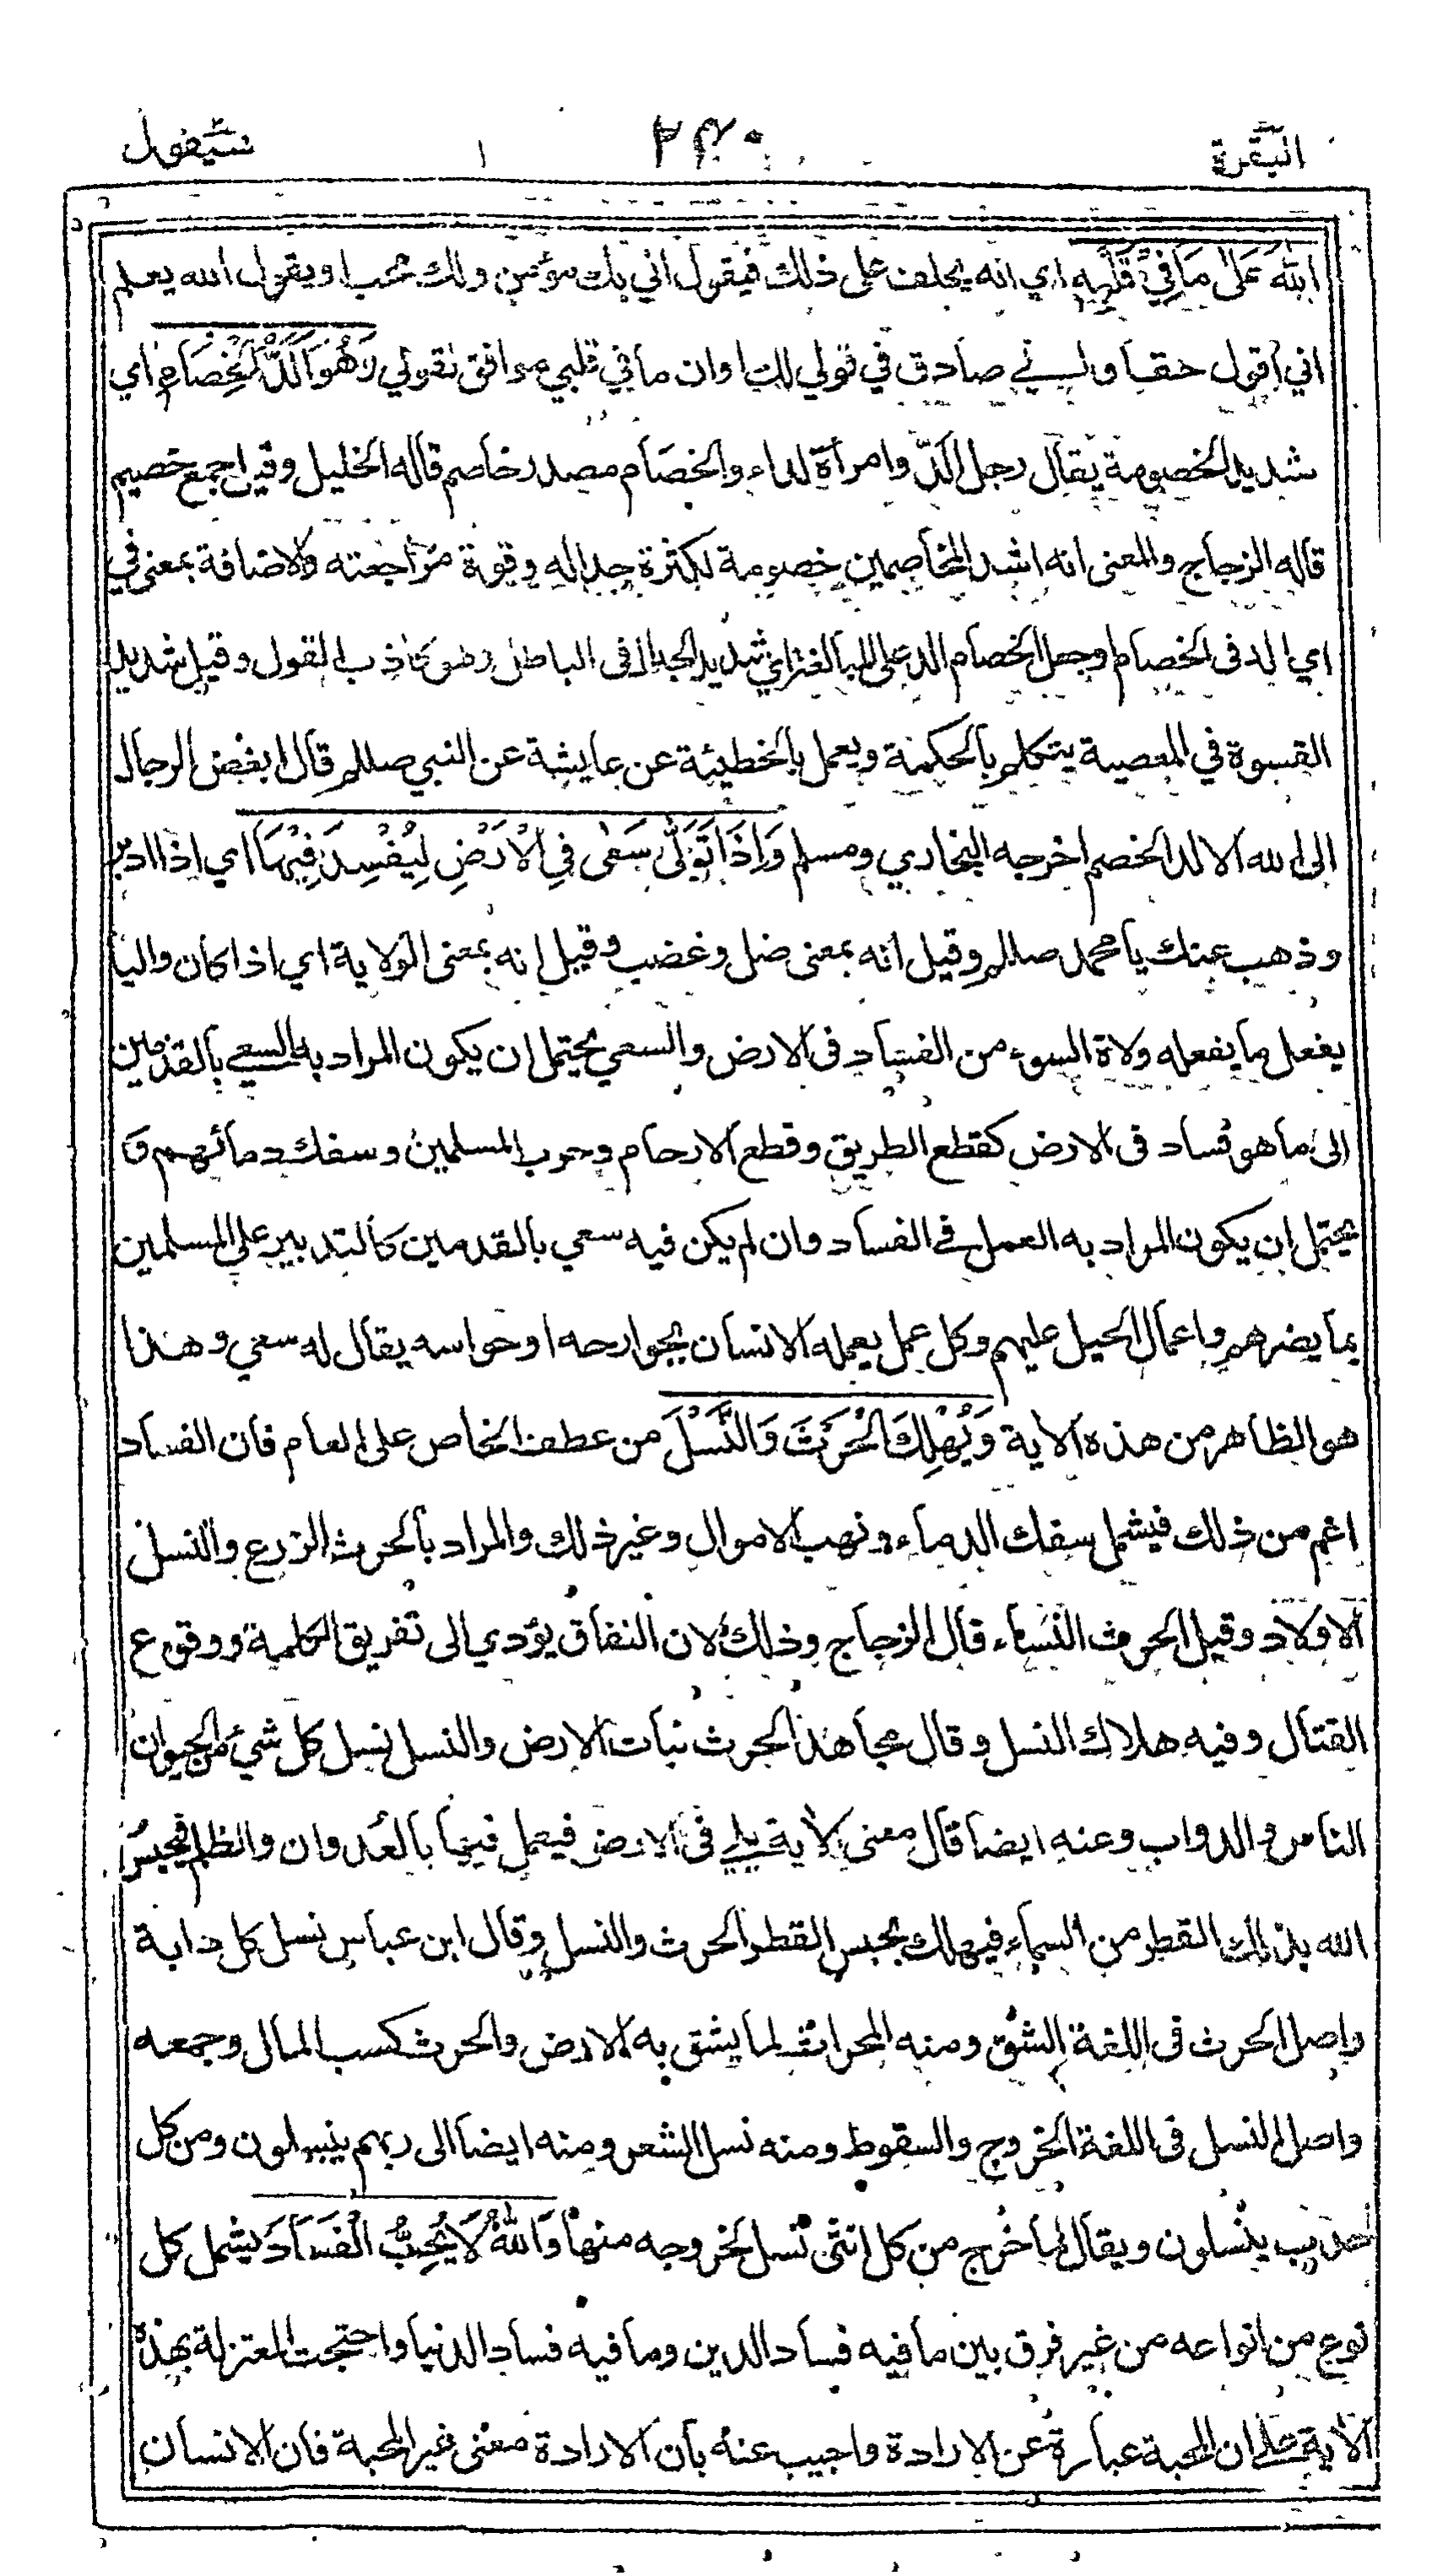 البقرة ٢٤٠ سيقول
اللهَ عَلَىٰ مَا فِيْ قَلْبِهِ اي انه يحلف على ذلك فيقول اني بك مؤمن ولك محب او يقول الله يعلم
اني اقول حقا واني صادق في قولي لك او ان ما في قلبي موافق لقولي وَهُوَ اَلَدُّ الْخِصَامِ اي
شديد الخصومة يقال رجل الدّ وامرأة لداء والخصام مصدر خاصم قاله الخليل وقيل جمع خصيم
قاله الزجاج والمعنى انه اشد المخاصمين خصومة لكثرة جداله وقوة مراجعته والاضافة بمعنى في
اي الد في الخصام او جعل الخصام الد على المبالغة اي شديد الجدال في الباطل وهو كاذب القول وقيل شديد
القسوة في المعصية يتكلم بالحكمة ويعمل بالخطيئة عن عايشة عن النبي صللم قال ابغض الرجال
الى الله الالد الخصم اخرجه البخاري ومسلم وَاِذَا تَوَلّٰى سَعٰى فِي الْاَرْضِ لِيُفْسِدَ فِيْهَا اي اذا ادبر
وذهب عنك يا محمد صللم وقيل انه بمعنى ضل وغضب وقيل انه بمعنى الولاية اي اذا كان واليا
يفعل ما يفعله ولاة السوء من الفساد في الارض والسعي يحتمل ان يكون المراد به السعي بالقدمين
الى ما هو فساد في الارض كقطع الطريق وقطع الارحام وحرب المسلمين وسفك دمائهم و
يحتمل ان يكون المراد به العمل في الفساد وان لم يكن فيه سعي بالقدمين كالتدبير على المسلمين
بما يضرهم واعمال الحيل عليهم وكل عمل يعمله الانسان بجوارحه او حواسه يقال له سعي وهذا
هو الظاهر من هذه الاية وَيُهْلِكَ الْحَرْثَ وَالنَّسْلَ من عطف الخاص على العام فان الفساد
اعم من ذلك فيشمل سفك الدماء ونهب الاموال وغير ذلك والمراد بالحرث الزرع والنسل
الاولاد وقيل الحرث النساء قال الزجاج وذلك لان النفاق يؤدي الى تفريق الكلمة ووقوع
القتال وفيه هلاك النسل وقال مجاهد الحرث نبات الارض والنسل نسل كل شيء من الحيوان
الناس والدواب وعنه ايضا قال معنى الاية يلي في الارض فيعمل فيها بالعدوان والظلم فيحبس
الله بذلك القطر من السماء فيهلك بحبس القطر الحرث والنسل وقال ابن عباس نسل كل دابة
واصل الحرث في اللغة الشق ومنه المحراث لما يشق به الارض والحرث كسب المال وجمعه
واصل النسل في اللغة الخروج والسقوط ومنه نسل الشعر ومنه ايضا الى ربهم ينسلون ومن كل
حدب ينسلون ويقال لما خرج من كل انثى نسل لخروجه منها وَاللهُ لَا يُحِبُّ الْفَسَادَ يشمل كل
نوع من انواعه من غير فرق بين ما فيه فساد الدين وما فيه فساد الدنيا واحتجت المعتزلة بهذه
الاية على ان المحبة عبارة عن الارادة واجيب عنه بان الارادة معنى غير المحبة فان الانسان